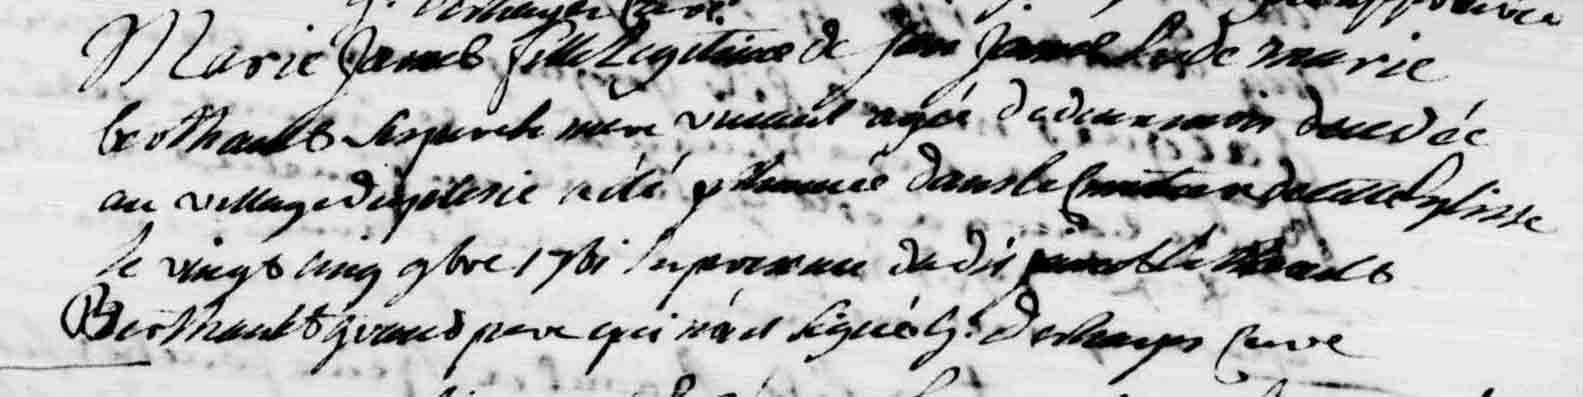 Marie James fille Legitime de Jan James & de marie
berthault ses pere & mere vivant agée de deux mois decedée
au village de a été Inhumée dans le Cimetiere de cette Eglisse
le vingt cinq 9bre 1761 En presence du dit
Berthault grand pere qui n'a signé G. Deshayes Curé